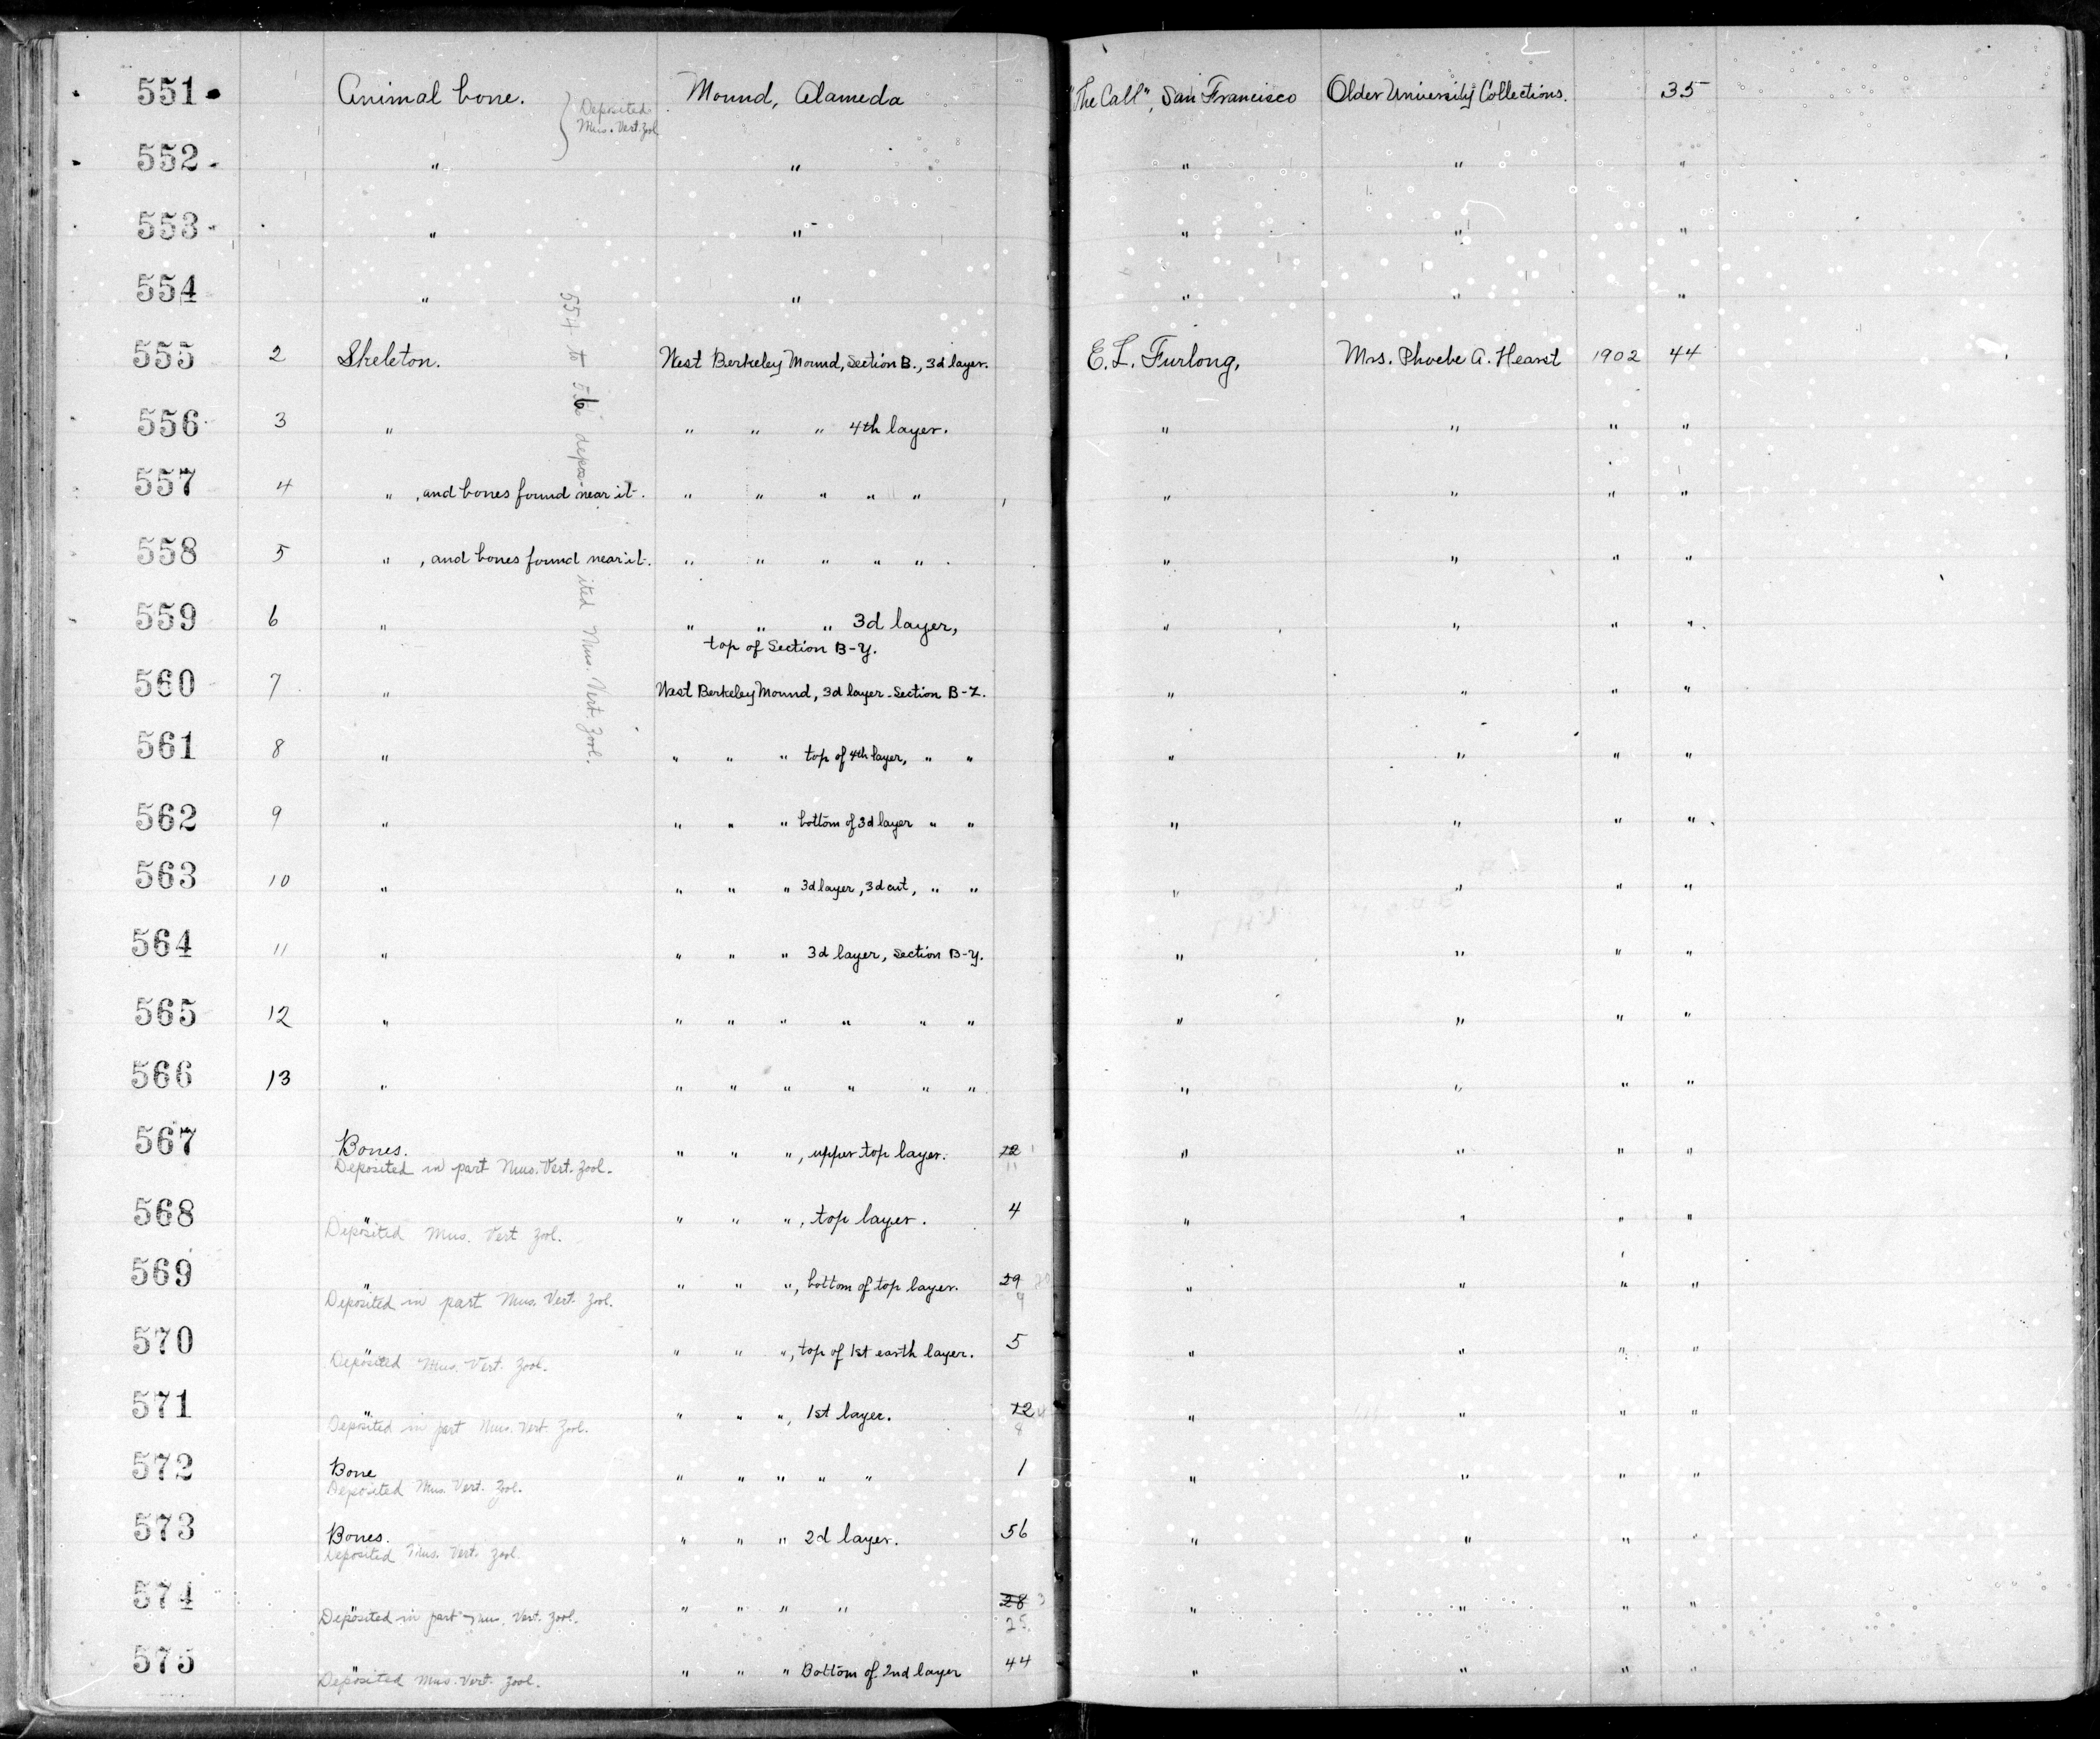 551 Animal bone. Mound, Alameda "The Call", San Francisco Older University Collections. 35
Deposited
Mus. Vert. Zool
552 " " " " "
553 " " " " "
554 " " " " "
555 2 Skeleton. West Berkeley Mound, Section B., 3d layer. E. L. Furlong, Mrs. Phoebe A. Hearst 1902 44
556 3 " " " " 4th layer. " " " "
557 4 " , and bones found near it. " " " " " " " " "
558 5 " , and bones found near it. " " " " " " " " "
559 6 " " " " 3d layer, " " " "
top of Section B-Y.
560 7 " West Berkeley Mound, 3d layer - Section B-Z. " " " "
561 8 " " " " top of 4th layer, " " " " " "
562 9 " " " " bottom of 3d layer " " " " " "
563 10 " " " " 3d layer, 3d cut, " " " " " "
564 11 " " " " 3d layer, Section B-Y. " " " "
565 12 " " " " " " " " " " "
566 13 " " " " " " " " " " "
554 to deposited Mus. Vert. Zool.
567 Bones. " " ", upper top layer. 22 " " " "
Deposited in part Mus. Vert. Zool. 11
568 " " " ", top layer. 4 " " " "
Deposited Mus. Vert Zool.
569 " " " ", bottom of top layer. 29 " " " "
Deposited in part Mus. Vert. Zool. 9
570 " " " ", top of 1st earth layer. 5 " " " "
Deposited Mus. Vert. Zool.
571 " " " ", 1st layer. 12 " " " "
Deposited in part Mus. Vert. Zool. 8
572 Bone " " " " " 1 " " " "
Deposited Mus. Vert. Zool.
573 Bones. " " " 2d layer. 56 " " " "
Deposited Mus. Vert. Zool.
574 " " " " " 28 3 " " " "
Deposited in part Mus. Vert. Zool. 25
575 " " " " Bottom of 2nd layer 44 " " " "
Deposited Mus. Vert. Zool.